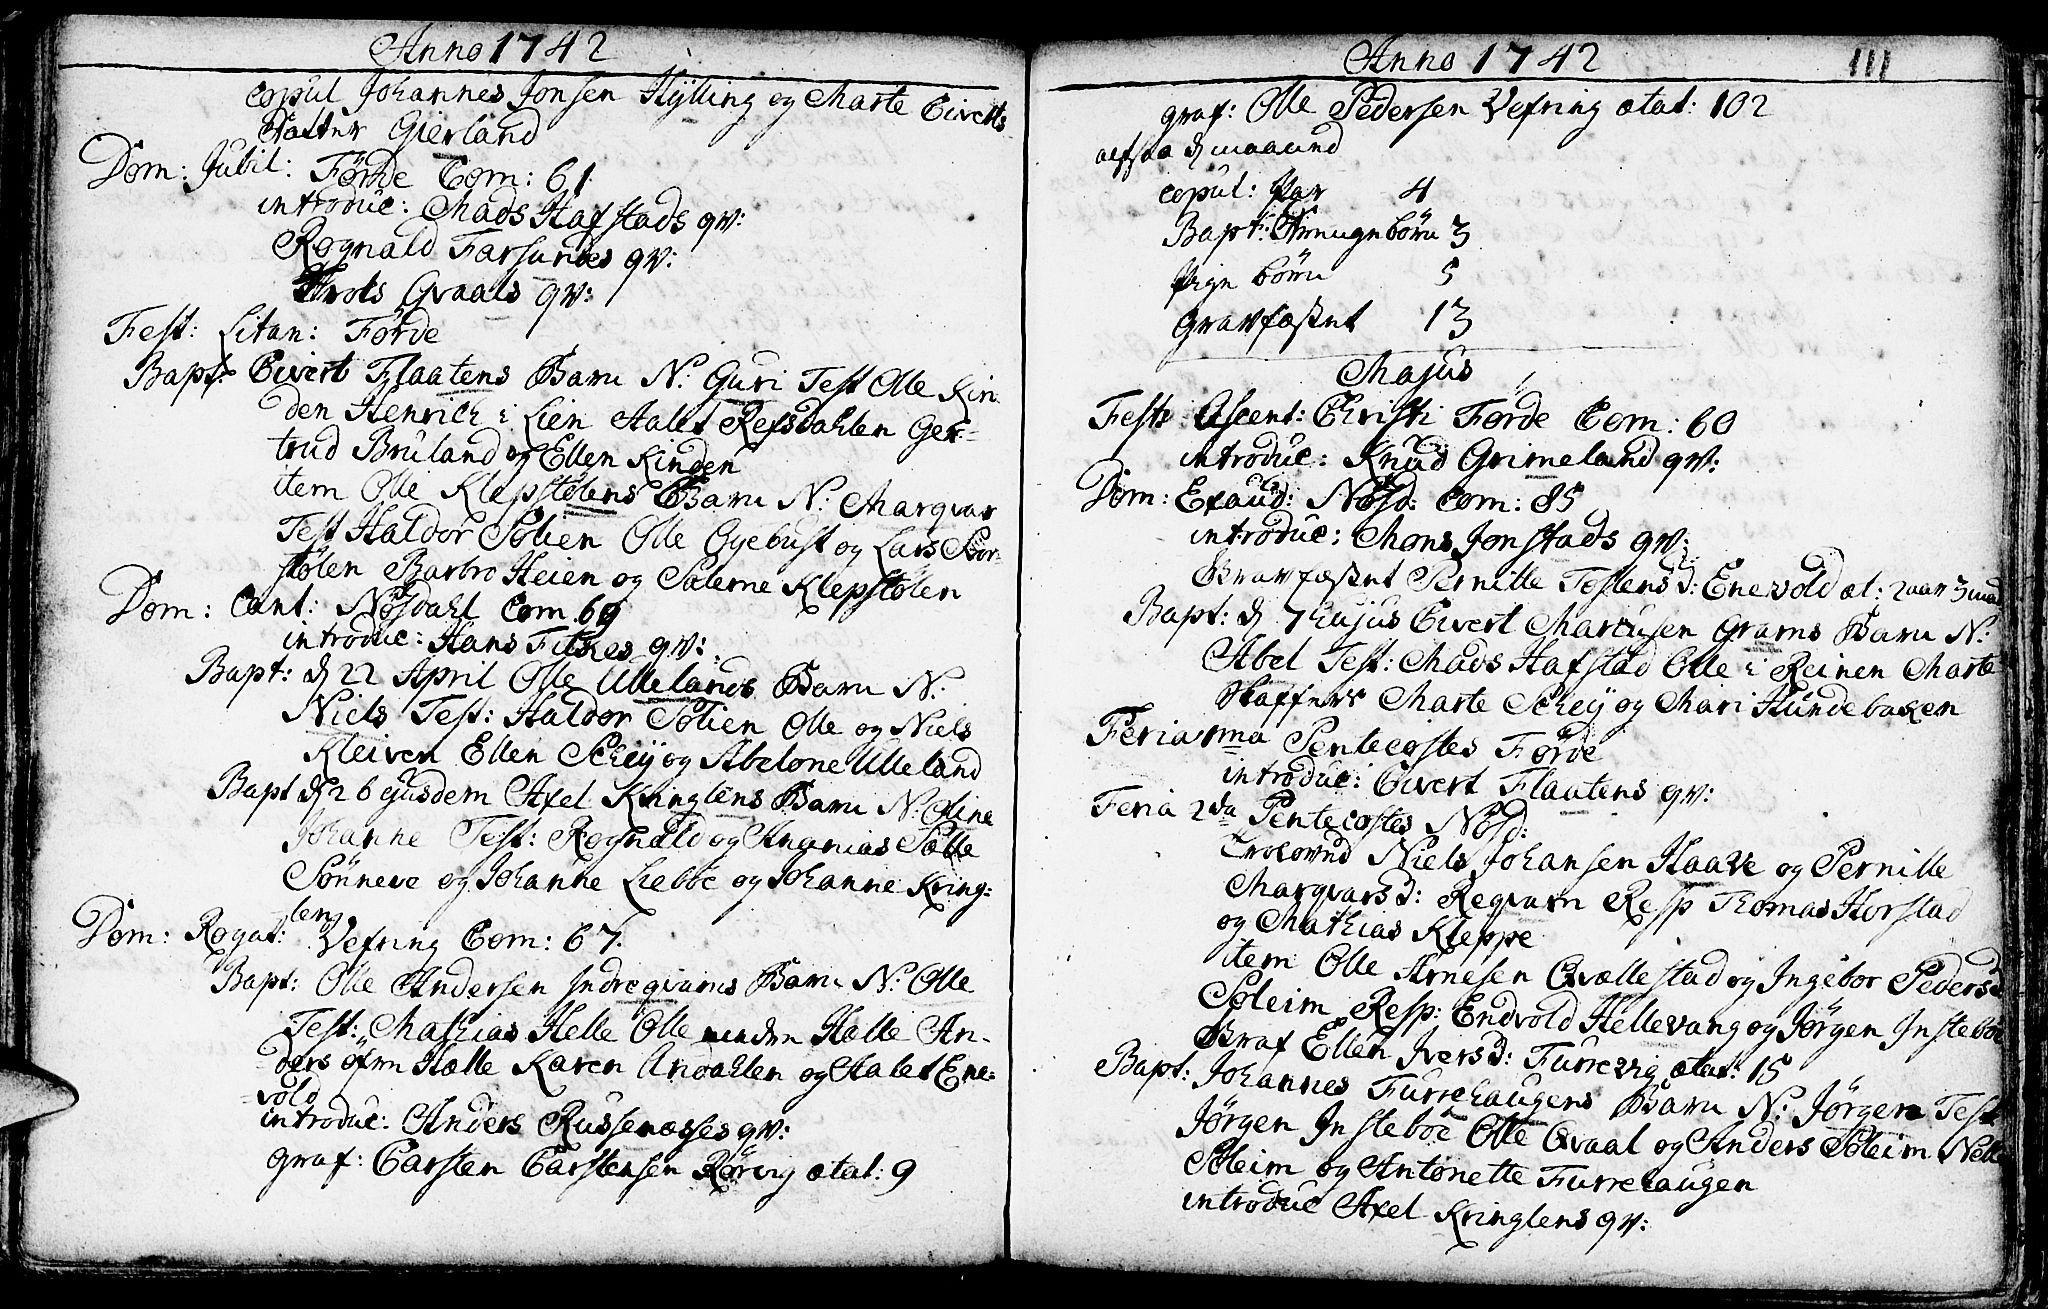 Anno 1742
copul Johannes Jonsen Hÿlling og Marte Eiverts
datter Gierland
Dom: Jubil: Förde Com: 61
introduc: Mads Hafstads qv:
Rognald Farsundes qv:
Trols Qvaals qv:
Fest: Litan: Förde
Bapt: Eivert Flaatens Barn N: Guri Test Olle Kin-
den Henrich i Lien Aalet Refsdahlen Ger-
trud Bruland og Ellen Kinden
item Olle Klepstølens Barn N: Marqvar
Test Haldor Solien Olle Øyebust og Lars Stor-
stølen Barbro Heien og Salerne Klepstølen
Dom: Cant: Nösdahl Com 69
introduc: Hans Fitkes qv:
Bapt: d 22 April Olle Ullelands Barn N:
Niels Test: Haldor Solien Olle og Niels
Kleiven Ellen Scheÿ og Abelone Ulleland
Bapt d 26 ejusdem Axel Kringlens Barn N: Oline
Johanne Test: Rognald og Ananias Sælle
Sönneve og Johanne Liebøe og Johanne Kring=
len
Dom: Rogat: Vefring Com: 67.
Bapt: Olle Andersen Indreqvams Barn N: Olle
Test: Mathias Helle Olle neden Hælle An-
ders öfven Hælle Karen Andahlen og Aalet Ene=
vold
introduc: Anders Russenæsses qv:
graf: Carsten Carstensen Rörvig ætat: 9
Anno 1742
111
graf: Olle Pedersen Vefring ætat: 102
altsaa d maaned
copul: Par 4
Bapt: Drengebörn 3
Pige börn 5
Gravfæstet 13
Majus
Fest: Ascent: Christi Förde Com: 60
introduc: Knud Grimeland qv:
Dom: Exaud: Nösd: Com: 85
introduc: Mons Jonstads qv:
Gravfæstet Pernille Tostensd: Enevold æt: 2 aar 3 md
Bapt: d 7 hujus Eivert Marcusen Grams Barn N:
Abel Test: Mads Hafstad Olle i Reinen Marte
Skaffers Marte Scheÿ og Mari Hundebaken
Feria 1ma Pentecostes Förde
introduc: Eivert Flaatens qv:
Feria 2da Pentecostes Nösd:
Trolovnd Niels Johansen Haave og Pernille
Marqvarsd: Reqvarn Resp Thomas Horstad
og Mathias Kleppe
item Olle Arnesen Qvællestad og Ingebor Pedersd
Soleim Resp: Endvold Hellevang og Jörgen Insteböe
Graf Ellen Iversd: Furrevig ætat: 15
Bapt: Johannes Furrehaugens Barn N: Jörgen Test
Jörgen Insteböe Olle Qvaal og Anders Soleim Nelle
Soleim og Antonette Furrehaugen
introduc Axel Kringlens qv: